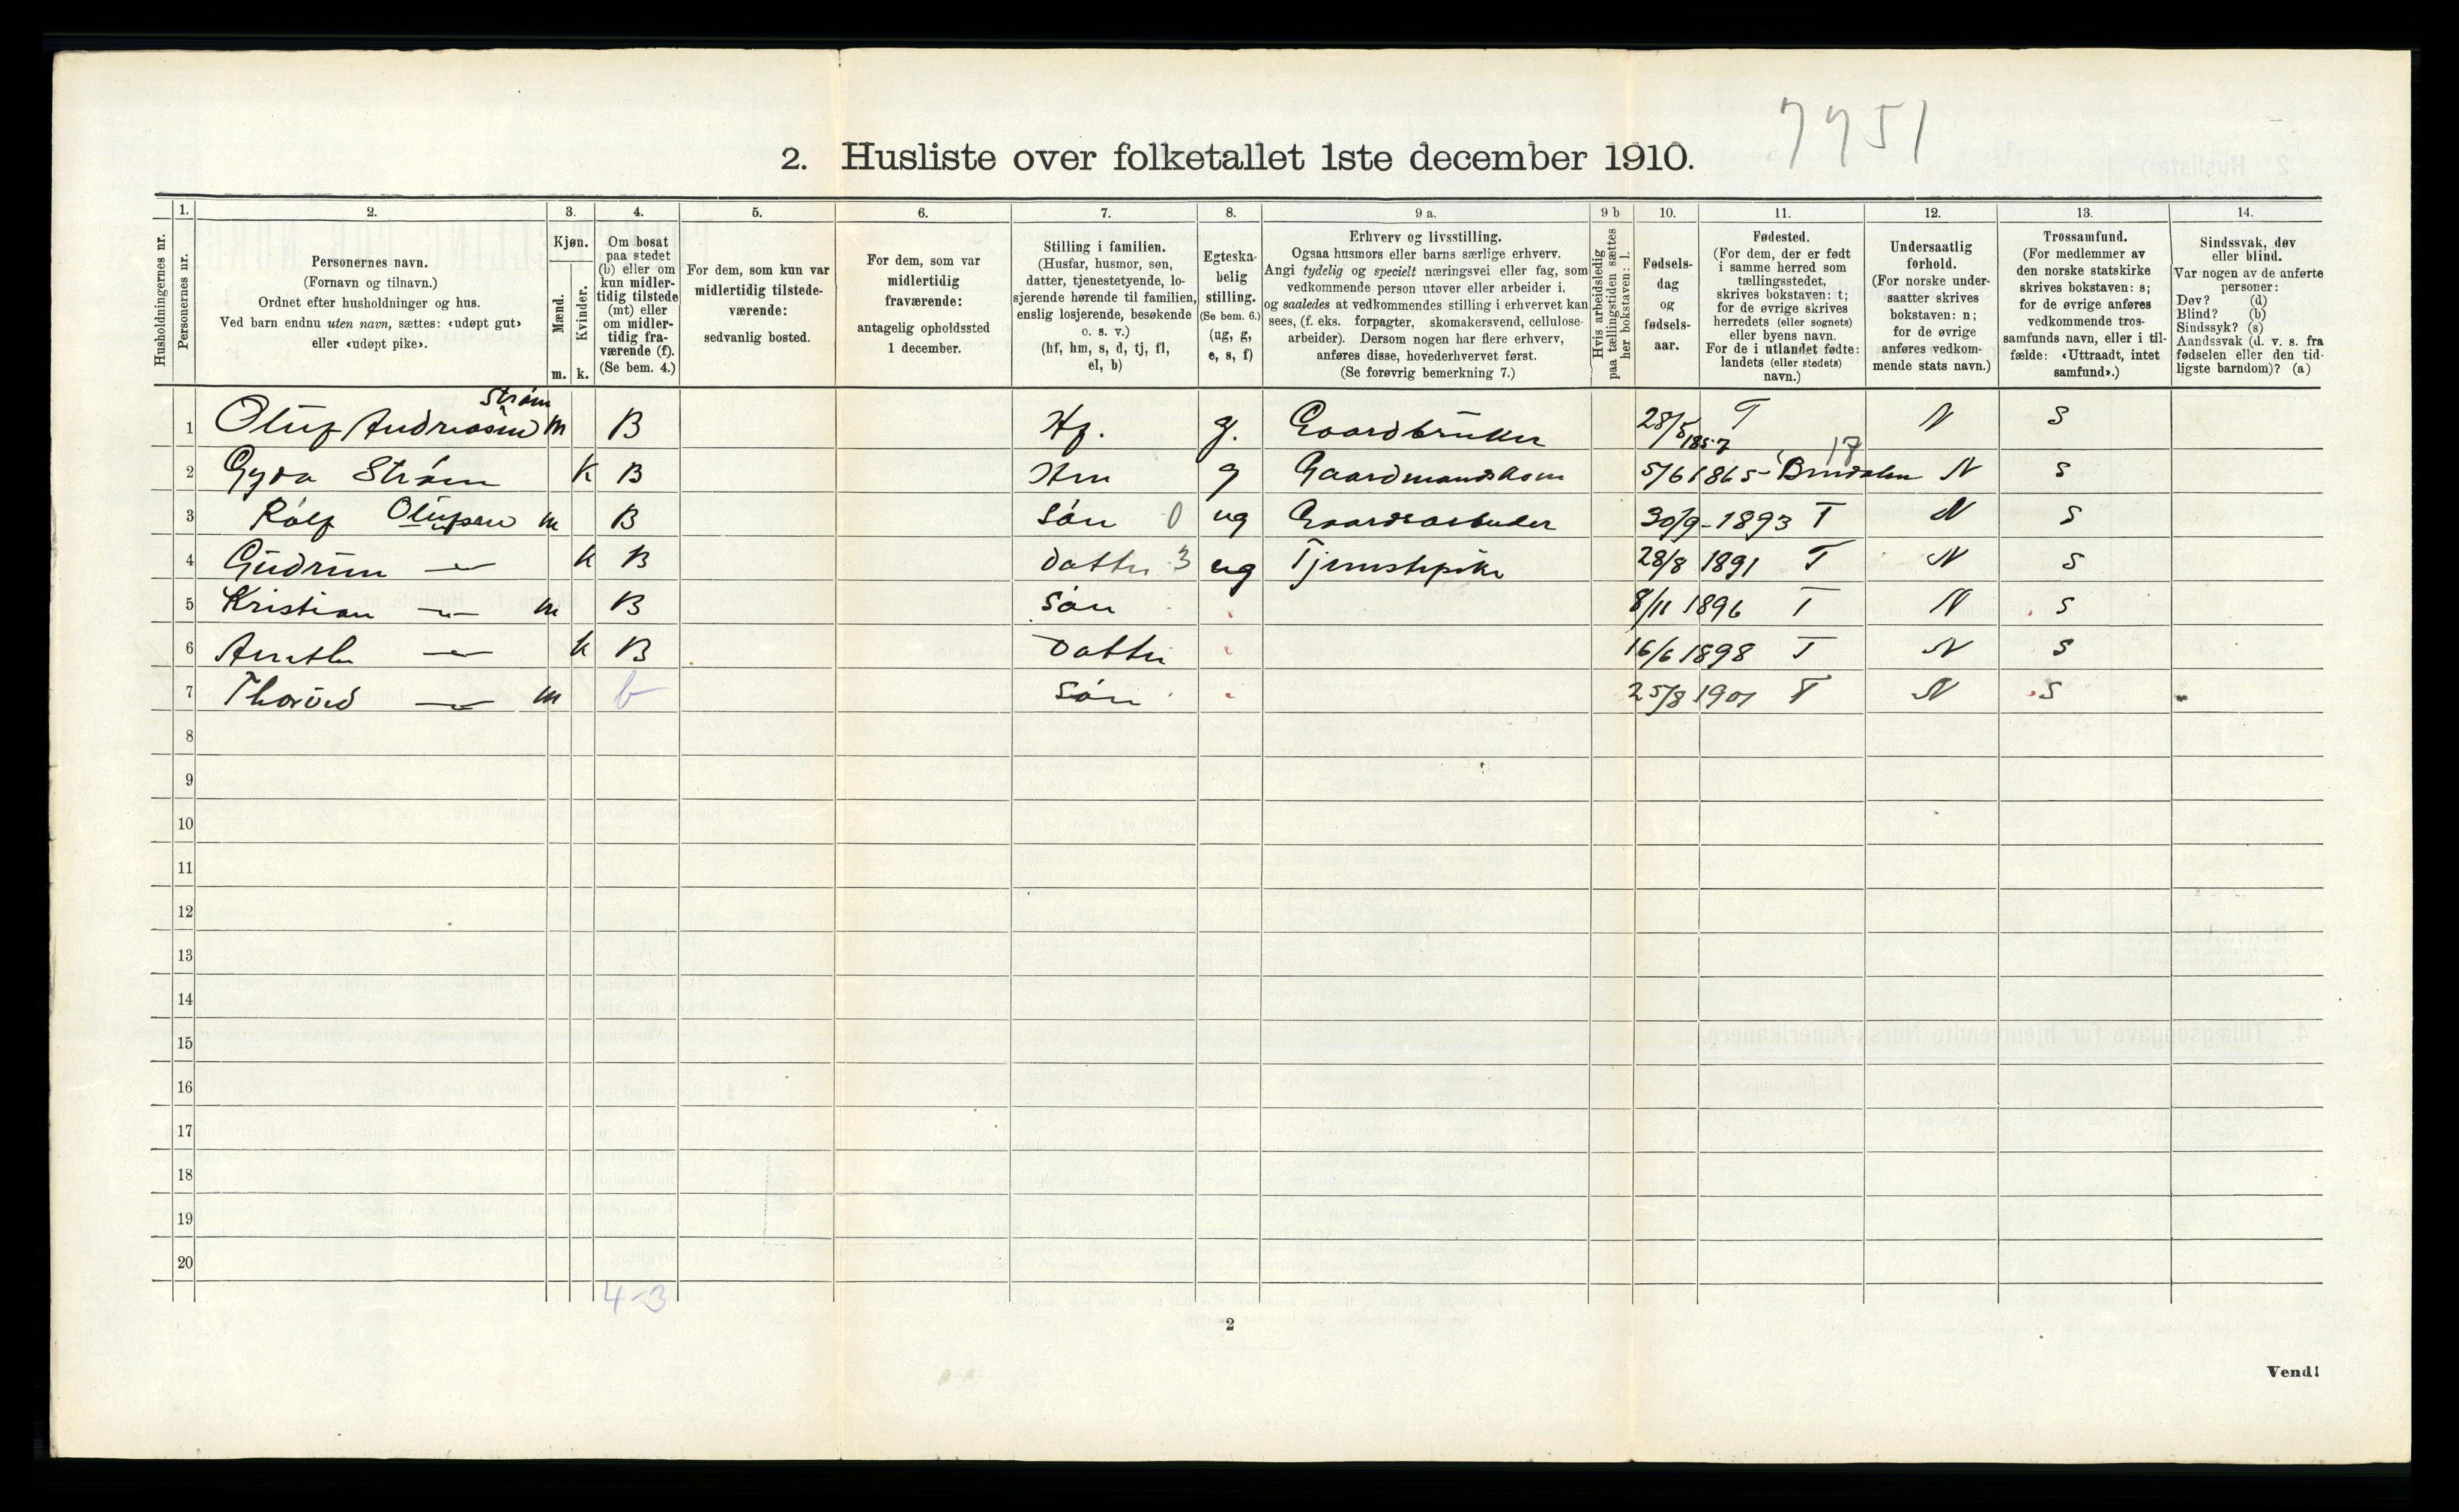 7751
2. Husliste over folketallet 1ste december 1910.
Husholdningernes nr.
1. Personernes nr.
2. Personernes navn.
(Fornavn og tilnavn.)
Ordnet efter husholdninger og hus.
Ved barn endnu uten navn, sættes: «udøpt gut»
eller «udøpt pike».
3. Kjøn.
Mænd. m.
Kvinder. k.
4. Om bosat
paa stedet
(b) eller om
kun midler-
tidig tilstede
(mt) eller
om midler-
tidig fra-
værende (f).
(Se bem. 4.)
5. For dem, som kun var
midlertidig tilstede-
værende:
sedvanlig bosted.
6. For dem, som var
midlertidig
fraværende:
antagelig opholdssted
1 december.
7. Stilling i familien.
(Husfar, husmor, søn,
datter, tjenestetyende, lo-
sjerende hørende til familien,
enslig losjerende, besøkende
o. s. v.)
(hf, hm, s, d, tj, fl,
el, b)
8. Egteska-
belig
stilling.
(Se bem. 6.)
(ug, g,
e, s, f)
9 a. Erhverv og livsstilling.
Ogsaa husmors eller barns særlige erhverv.
Angi tydelig og specielt næringsvei eller fag, som
vedkommende person utøver eller arbeider i,
og saaledes at vedkommendes stilling i erhvervet kan
sees, (f. eks. forpagter, skomakersvend, cellulose-
arbeider). Dersom nogen har flere erhverv,
anføres disse, hovederhvervet først.
(Se forøvrig bemerkning 7.)
9 b Hvis arbeidsledig
paa tællingstiden sættes
her bokstaven: l.
10. Fødsels-
dag
og
fødsels-
aar.
11. Fødested.
(For dem, der er født
i samme herred som
tællingsstedet,
skrives bokstaven: t;
for de øvrige skrives
herredets (eller sognets)
eller byens navn.
For de i utlandet fødte:
landets (eller stedets)
navn.)
12. Undersaatlig
forhold.
(For norske under-
saatter skrives
bokstaven: n;
for de øvrige
anføres vedkom-
mende stats navn.)
13. Trossamfund.
(For medlemmer av
den norske statskirke
skrives bokstaven: s;
for de øvrige anføres
vedkommende tros-
samfunds navn, eller i til-
fælde: «Uttraadt, intet
samfund».)
14. Sindssvak, døv
eller blind.
Var nogen av de anførte
personer:
Døv? (d)
Blind? (b)
Sindssyk? (s)
Aandssvak (d. v. s. fra
fødselen eller den tid-
ligste barndom)? (a)
Strøm
1 Oluf Andreasen m B Hf. g. Gaardbruker 28/5 1857 T N S
17
2 Gyda Strøm K B Hm g Gaardmandskone 5/6 1865 Brindalen N S
3 Rolf Olufsen m B Søn 0 ug Gaardsarbeider 30/9-1893 T N S
4 Gudrun — k B Datter 3 ug Tjenestepike 28/8 1891 T N S
5 Kristian — m B Søn 8/11 1896 T N S
6 — k B Datter 16/6 1898 T N S
7 — m b Søn 25/8 1901 T N S
8
9
10
11
12
13
14
15
16
17
18
19
20
4-3
2
Vend!